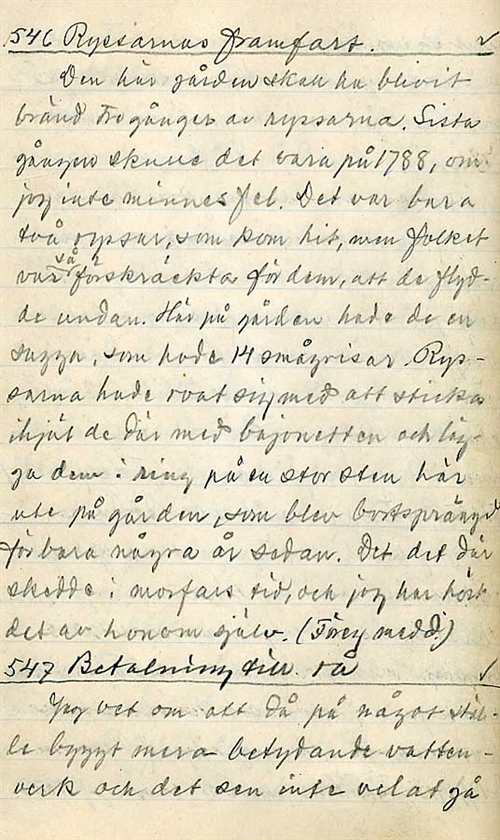 546 Ryssarnas framfart. ✓
Den här gården skall ha blivit
bränd tre gånger av ryssarna. Sista
gången skulle det vara på 1788, om
jag inte minnes fel. Det var bara
två ryssar, som kom hit, men folket
var så förskräckta för dem, att de flyd-
de undan. Här på gården hade de en
sugga, som hade 14 smågrisar. Rys-
sarna hade roat sig med att sticka
ihjäl de där med bajonetten och läg-
ga dem i ring på en stor sten här
ute på gården, som blev bortsprängd
för bara några år sedan. Det det där
skedde i morfars tid, och jag har hört
det av honom själv. (Föreg medd.)
547 Betalning till rå ✓
Jag vet om att då på något stäl-
le byggt mera betydande vatten-
verk och det sen inte velat gå